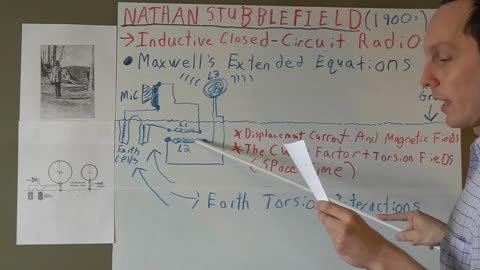 NATHAN STUBBLEFIELD (1900s)
→ Inductive Closed-Circuit Radio
• Maxwell's Extended Equations
L3
Mic
Gr
L1
L2
Earth
Cells
* Displacement Current And Magnetic Fields
* The Cu Factor + Torsion Fields
(Space ime)
→ Earth Torsion I teractions